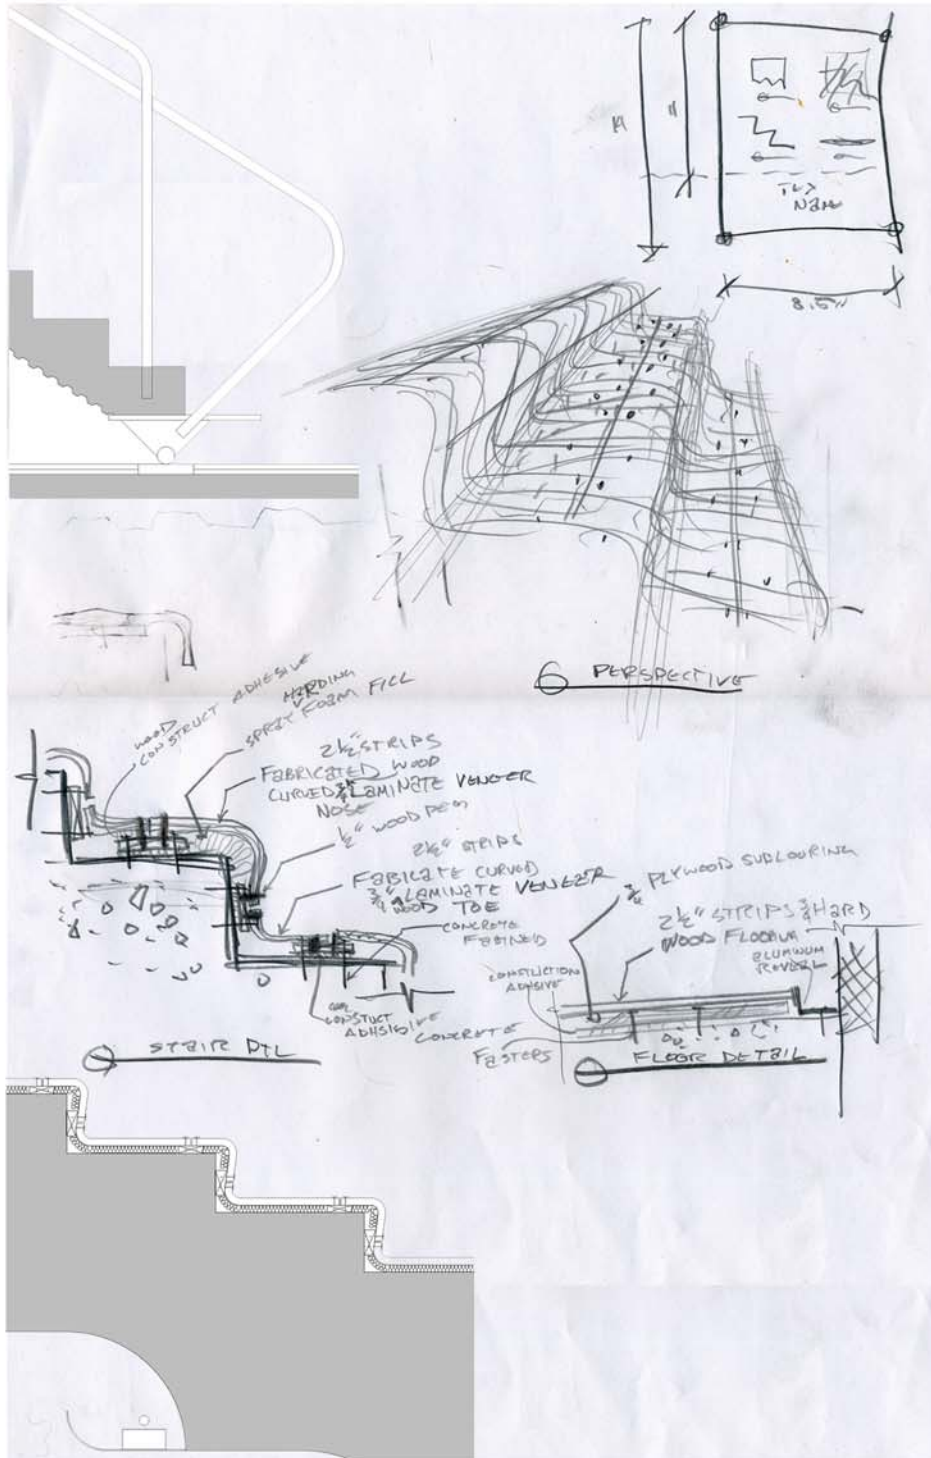 11
8.5"
6 PERSPECTIVE
WOOD
CONSTRUCT ADHESIVE
HARDING
SPRAY FOAM FILL
2½" STRIPS
FABRICATED WOOD
CURVED ¾" LAMINATE VENEER
NOSE
½" WOOD PEG
2½" STRIPS
FABRICATE CURVED
¾" LAMINATE VENEER
WOOD TOE
CONCRETE
CONSTUCT
ADHSISIVE
CONCRETE
STAIR DTL
¾ PLYWOOD SUBLOURING
2½" STRIPS ¾ HARD
WOOD FLOORING
ALUMNUM
REVEAL
CONSTRUCTION
ADHSIVE
FASTERS
FLOOR DETAIL